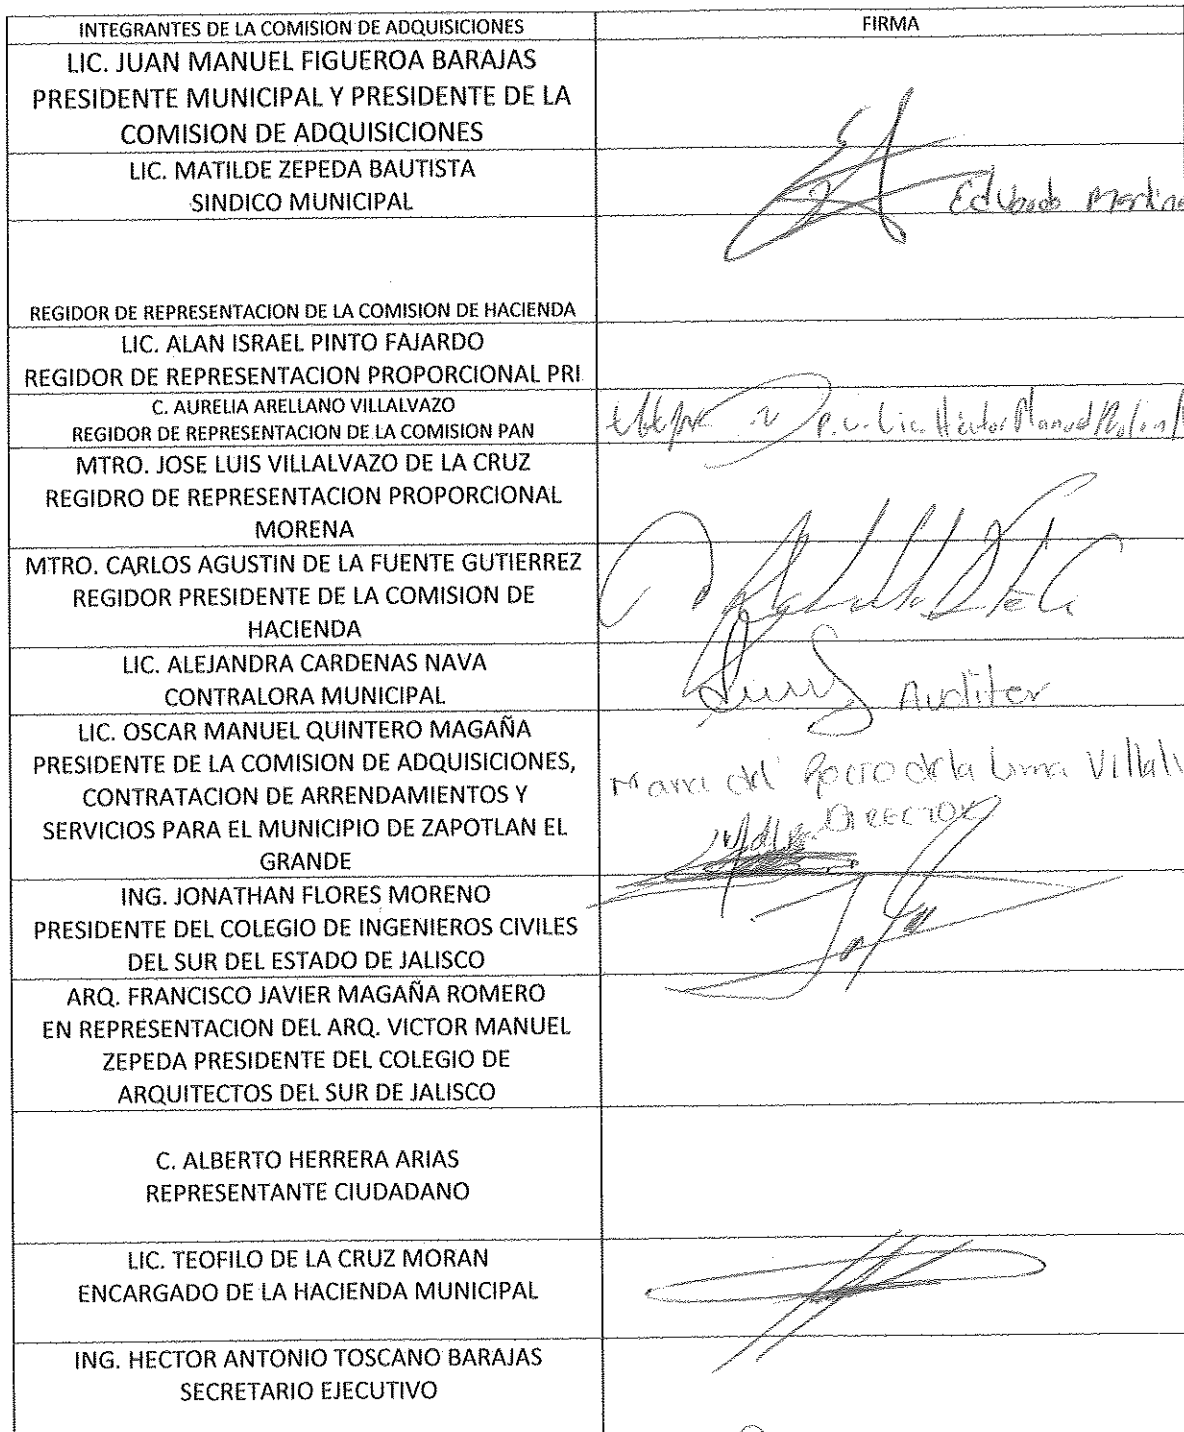 INTEGRANTES DE LA COMISION DE ADQUISICIONES
FIRMA
LIC. JUAN MANUEL FIGUEROA BARAJAS
PRESIDENTE MUNICIPAL Y PRESIDENTE DE LA
COMISION DE ADQUISICIONES
LIC. MATILDE ZEPEDA BAUTISTA
SINDICO MUNICIPAL
REGIDOR DE REPRESENTACION DE LA COMISION DE HACIENDA
LIC. ALAN ISRAEL PINTO FAJARDO
REGIDOR DE REPRESENTACION PROPORCIONAL PRI
C. AURELIA ARELLANO VILLALVAZO
REGIDOR DE REPRESENTACION DE LA COMISION PAN
Lic. Héctor Manuel
MTRO. JOSE LUIS VILLALVAZO DE LA CRUZ
REGIDRO DE REPRESENTACION PROPORCIONAL
MORENA
MTRO. CARLOS AGUSTIN DE LA FUENTE GUTIERREZ
REGIDOR PRESIDENTE DE LA COMISION DE
HACIENDA
LIC. ALEJANDRA CARDENAS NAVA
CONTRALORA MUNICIPAL
Auditor
LIC. OSCAR MANUEL QUINTERO MAGAÑA
PRESIDENTE DE LA COMISION DE ADQUISICIONES,
CONTRATACION DE ARRENDAMIENTOS Y
SERVICIOS PARA EL MUNICIPIO DE ZAPOTLAN EL
GRANDE
DIRECTOR
ING. JONATHAN FLORES MORENO
PRESIDENTE DEL COLEGIO DE INGENIEROS CIVILES
DEL SUR DEL ESTADO DE JALISCO
ARQ. FRANCISCO JAVIER MAGAÑA ROMERO
EN REPRESENTACION DEL ARQ. VICTOR MANUEL
ZEPEDA PRESIDENTE DEL COLEGIO DE
ARQUITECTOS DEL SUR DE JALISCO
C. ALBERTO HERRERA ARIAS
REPRESENTANTE CIUDADANO
LIC. TEOFILO DE LA CRUZ MORAN
ENCARGADO DE LA HACIENDA MUNICIPAL
ING. HECTOR ANTONIO TOSCANO BARAJAS
SECRETARIO EJECUTIVO